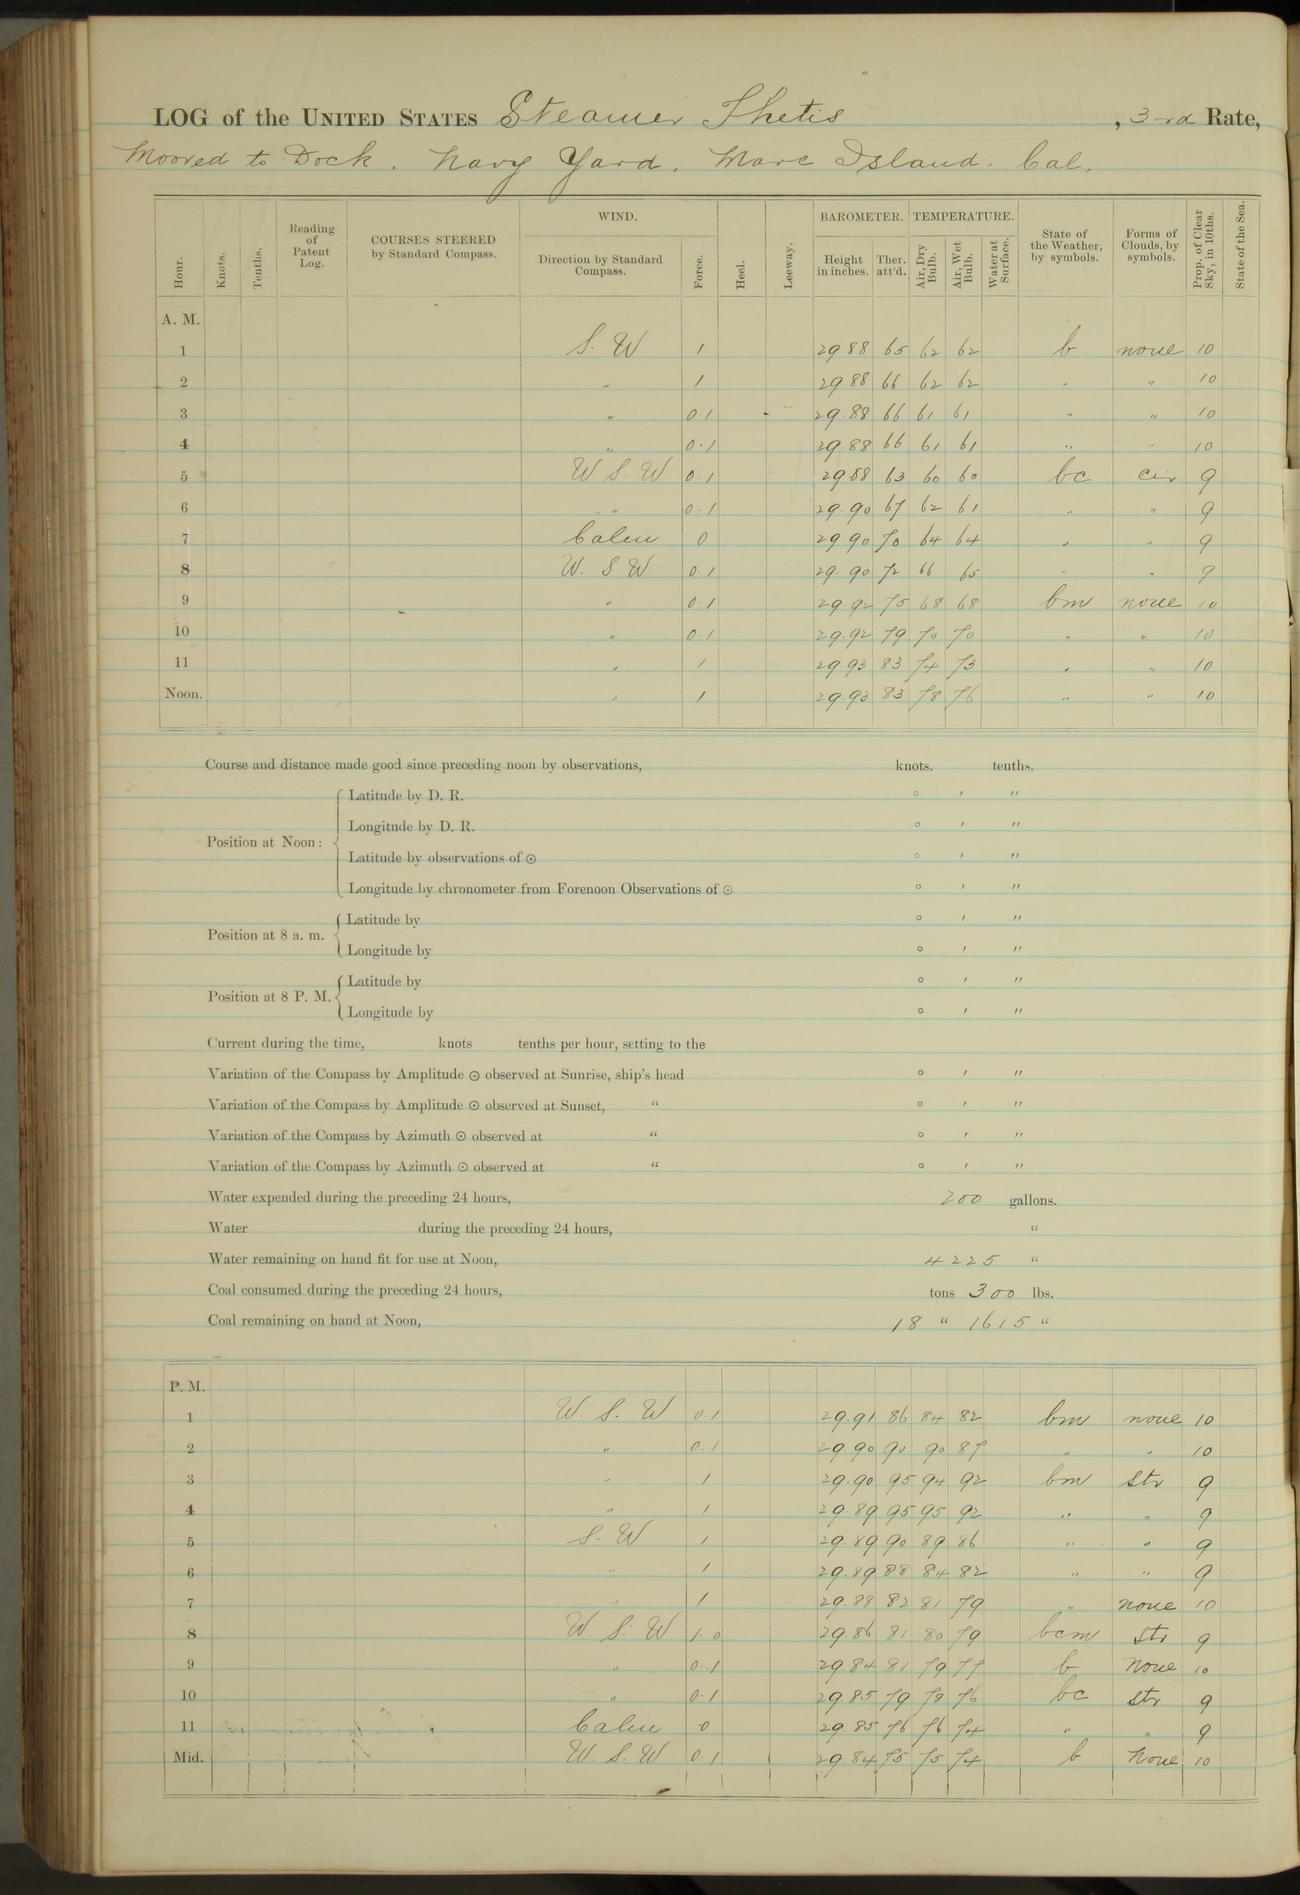 LOG of the UNITED STATES Steamer Thetis , 3rd Rate,
Moored to Dock. Navy Yard. Mare Island. Cal.
Hour. Knots. Tenths. Reading of Patent Log. COURSES STEERED by Standard Compass. WIND. Direction by Standard Compass. Force. Heel. Leeway. BAROMETER. Height in inches. Ther. att'd. TEMPERATURE. Air, Dry Bulb. Air, Wet Bulb. Water at Surface. State of the Weather, by symbols. Forms of Clouds, by symbols. Prop. of Clear Sky, in 10ths. State of the Sea.
A. M.
1 S. W 1 29 88 65 62 62 b none 10
2 " 1 29 88 66 62 62 " " 10
3 " 0.1 29.88 66 61 61 " " 10
4 " 0.1 29 88 66 61 61 " " 10
5 W S. W 0.1 29 88 63 60 60 bc cir 9
6 " 0.1 29.90 67 62 61 " " 9
7 Calm 0 29 90 70 64 64 " " 9
8 W. S W 0.1 29.90 72 66 65 " " 9
9 " 0.1 29 92 75 68 68 bm none 10
10 " 0.1 29.92 79 70 70 " " 10
11 " 1 29.93 83 74 73 " " 10
Noon. " 1 29 93 83 78 76 " " 10
Course and distance made good since preceding noon by observations, knots. tenths.
Position at Noon: Latitude by D. R. ° ' "
Longitude by D. R. ° ' "
Latitude by observations of ☉ ° ' "
Longitude by chronometer from Forenoon Observations of ☉ ° ' "
Position at 8 a. m. Latitude by ° ' "
Longitude by ° ' "
Position at 8 P. M. Latitude by ° ' "
Longitude by ° ' "
Current during the time, knots tenths per hour, setting to the
Variation of the Compass by Amplitude ☉ observed at Sunrise, ship's head ° ' "
Variation of the Compass by Amplitude ☉ observed at Sunset, " ° ' "
Variation of the Compass by Azimuth ☉ observed at " ° ' "
Variation of the Compass by Azimuth ☉ observed at " ° ' "
Water expended during the preceding 24 hours, 200 gallons.
Water during the preceding 24 hours, "
Water remaining on hand fit for use at Noon, 4225 "
Coal consumed during the preceding 24 hours, tons 300 lbs.
Coal remaining on hand at Noon, 18 " 1615 "
P. M.
1 W. S. W 0.1 29.91 86 84 82 bm none 10
2 " 0.1 29 90 90 90 87 " " 10
3 " 1 29.90 95 94 92 bm str 9
4 " 1 29.89 95 95 92 " " 9
5 S. W 1 29.89 90 89 86 " " 9
6 " 1 29.89 88 84 82 " " 9
7 " 1 29.88 82 81 79 " none 10
8 W. S. W 1.0 29.86 81 80 79 bcm str 9
9 " 0.1 29.84 81 79 77 b none 10
10 " 0.1 29.85 79 78 76 bc str 9
11 Calm 0 29 85 76 76 74 " " 9
Mid. W. S. W 0.1 29 84 75 75 74 b none 10